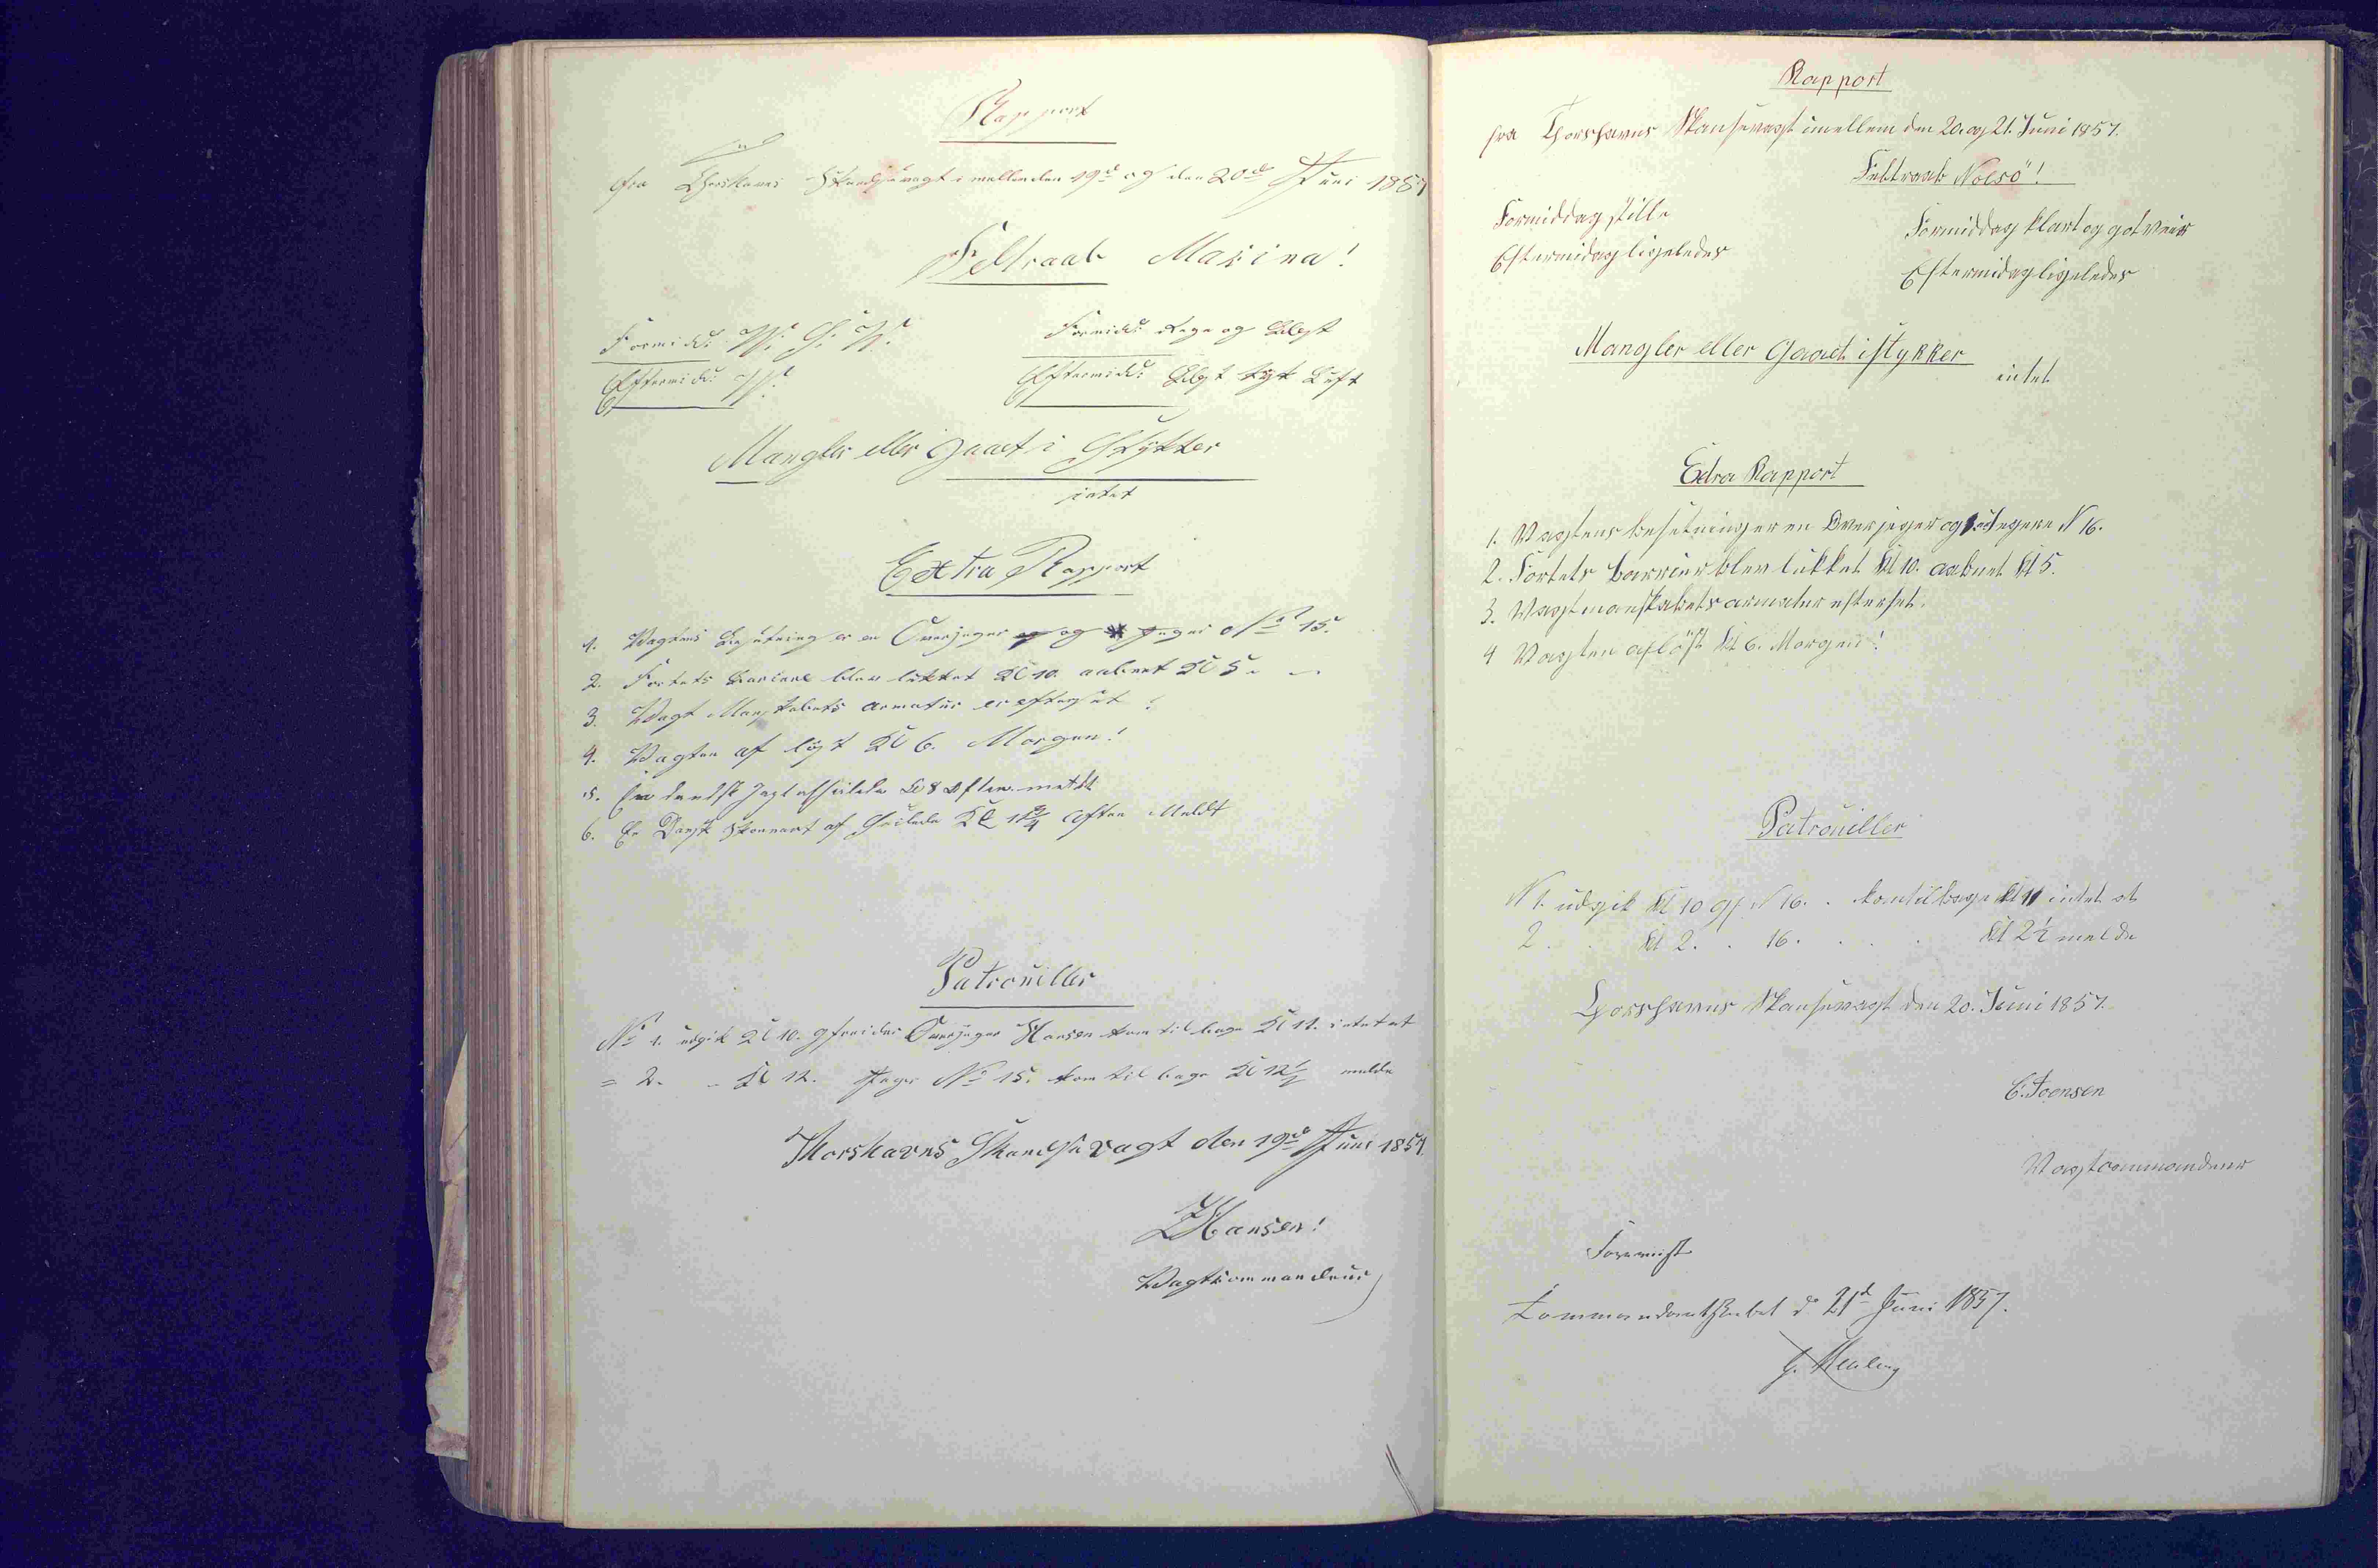 Rapport
fra Thorshavns Skandsevagt imellem den 19de og den 20de Juni 1857
Feltraab Marina!
Formidd: V. S. V.
Eftermidd: V.
Formidd: Rege og Blest
Eftermidd: Blest tyk Luft
Mangler eller gaaet i Stykker
intet
Extra Rapport
1. Vagtens Besetning er en Overjeger og Jeger No 15.
2. Fortets Bariere blev lukket Kl 10. aabnet Kl 5.
3. Vagt Manskabets armatur er efterset!
4. Vagten af löst Kl 6. Morgen!
5. En Jagt afseilede Kl 8 Aften meldt
6. En Dansk Skonnert af Seilede Kl Aften Meldt
Patrouiller
No 1. udgik Kl 10. Overjeger Hansen kom tilbage Kl 11. intet at
= 2. - Kl 12. Jeger No 15. kom tilbage Kl 12½ melde
Thorshavns Skandsevagt den 19de Juni 1857.
Hansen!
Vagtkommandeur
Rapport
fra Thorshavns Skansevagt imellem den 20. og 21. Juni 1857.
Feltraab Nolsö!
Formiddag stille
Eftermidag ligeledes
Formiddag klart og got veir
Eftermidag ligeledes
Mangler eller Gaaet istykker
intet
Extra Rapport
1. Vagtens besetning er en Overjeger og Jegere N 16.
2. Fortets barrier blev lukket Kl 10. aabnet Kl 5.
3. Vagtmanskabets armatur efterset.
4 Vagten aflöst Kl 6. Morgen!
Patrouiller
N 1. udgik Kl 10 gf. N 16. . kom tilbage Kl 11 intet at
2. . Kl 2. . 16. . . . . Kl 2½ melde
Thorshavns Skansevagt den 20. Juni 1857.
C. Joensen
Vagtcommandeur
Forevist
Kommandantskabet d. 21d Juni 1857.